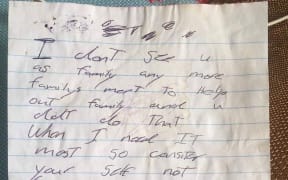 I dont see u
as family any more
familys ment to Help
out family and u
didt do that
When I need IT
most so consider
your self not